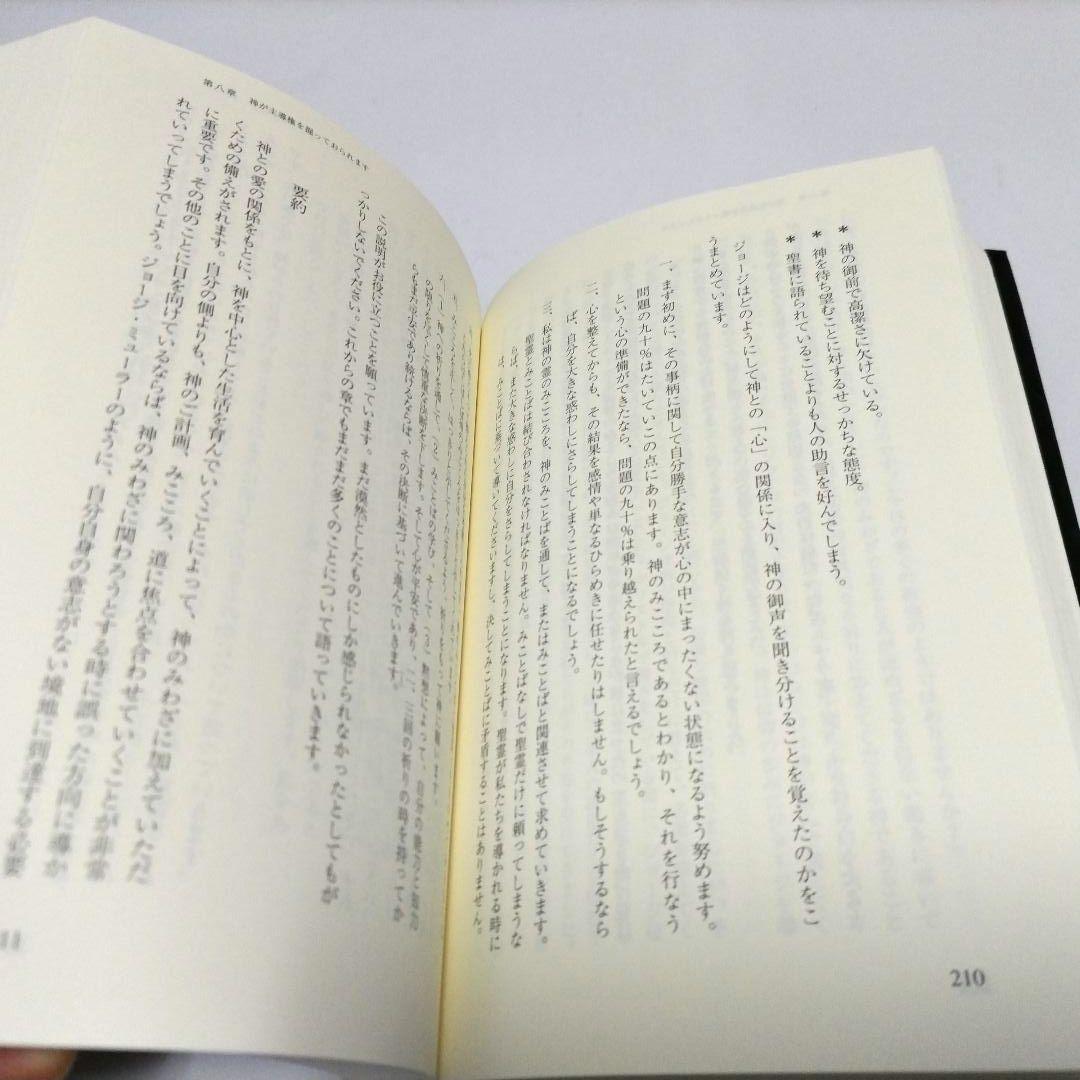 ＊ 神の御前で高潔さに欠けている。
＊ 神を待ち望むことに対するせっかちな態度。
＊ 聖書に語られていることよりも人の助言を好んでしまう。
ジョージはどのようにして神との「心」の関係に入り、神の御声を聞き分けることを覚えたのかをこ
うまとめています。
一、まず初めに、その事柄に関して自分勝手な意志が心の中にまったくない状態になるよう努めます。
問題の九十％はたいていこの点にあります。神のみこころであるとわかり、それを行なう
という心の準備ができたなら、問題の九十％は乗り越えられたと言えるでしょう。
二、心を整えてからも、その結果を感情や単なるひらめきに任せたりはしません。もしそうするなら
ば、自分を大きな惑わしにさらしてしまうことになるでしょう。
三、私は神の霊のみこころを、神のみことばを通して、またはみことばと関連させて求めていきます。
聖霊とみことばは結び合わされなければなりません。みことばなしで聖霊だけに頼ってしまうな
らば、また大きな惑わしに自分をさらしてしまうことになります。聖霊が私たちを導かれる時に
は、みことばに基づいて導いてくださいますし、決してみことばに矛盾することはありません。
210
第八章 神が主導権を握っておられます
祈りをもって神に願います。
神への祈りを通して、（２）みことばの学び、そして（３）黙想によって、自分の能力と知識の
限りを尽くして慎重な決断を下します。そして心が平安であり、二、三回の祈りの時を持ってか
らもまだ平安であり続けるならば、その決断に基づいて進んでいきます。
この説明がお役に立つことを願っています。まだ漠然としたものにしか感じられなかったとしてもが
っかりしないでください。これからの章でもまだまだ多くのことについて語っていきます。
要約
神との愛の関係をもとに、神を中心とした生活を育んでいくことによって、神のみわざに加えていただ
くための備えがされます。自分の側よりも、神のご計画、みこころ、道に焦点を合わせていくことが非常
に重要です。その他のことに目を向けているならば、神のみわざに関わろうとする時に誤った方向に導か
れていってしまうでしょう。ジョージ・ミューラーのように、自分自身の意志がない境地に到達する必要
11